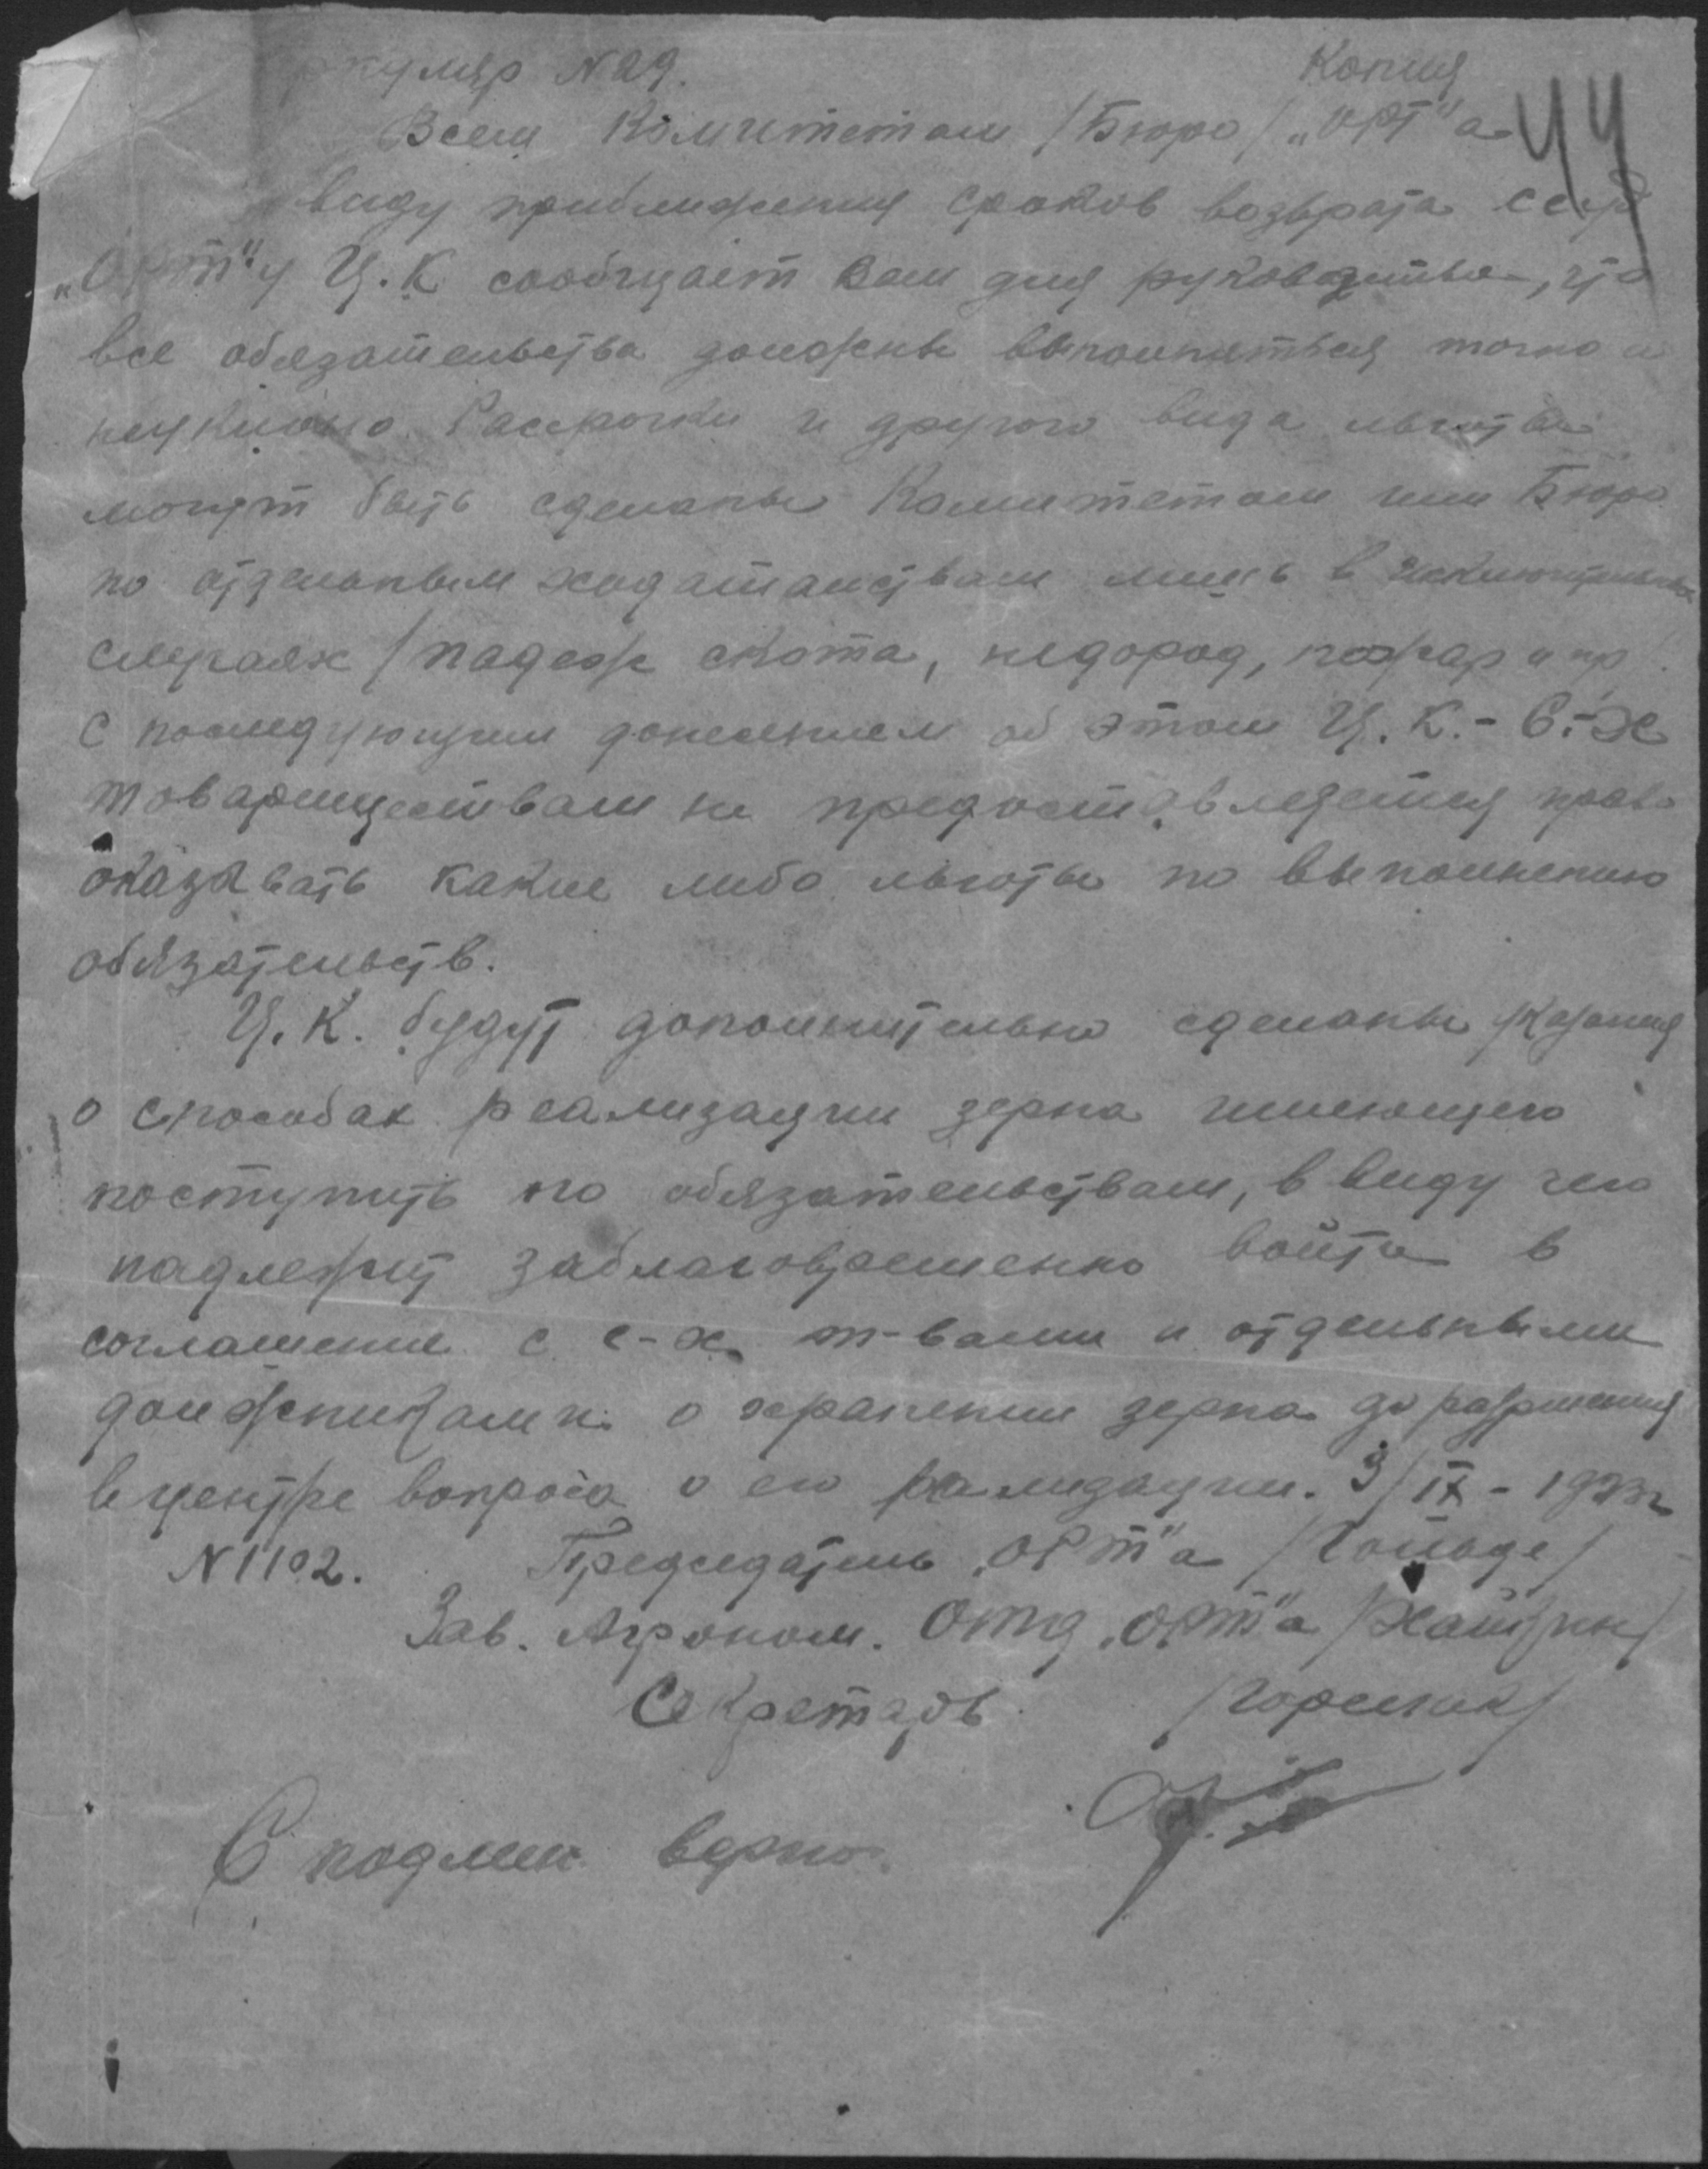 ркуляр N 29. Копия
44
Всем Комитетам /Бюро/ „ОРТ"а
виду приближения сроков возврата ссуд
„ОРТ"у Ц.К сообщает Вам для руководства, что
все обязательства должны выполняться точно и
неуклонно. Рассрочки и другого вида льготы
могут быть сделаны Комитетом или Бюро
по отдельным ходатайствам лишь в исключительных
случаях /падеж скота, недород, пожар и пр.
с последующим донесением об этом Ц.К. - С.-Х
товариществам не предоставляется право
оказывать какие либо льготы по выполнению
обязательств.
Ц.К. будут дополнительно сделаны указания
о способах реализации зерна имеющего
поступить по обязательствам, в виду чего
надлежит заблаговременно войти в
соглашение с с-х т-вами и отдельными
должниками о хранении зерна до разрешения
в центре вопроса о его реализации. 3/IX - 1923г
N 1102. Председатель „ОРТ"а /Гольде/
Зав. Агроном. Отд „ОРТ"а /Хайкин/
Секретарь /Горелик/
С подлин. верно.